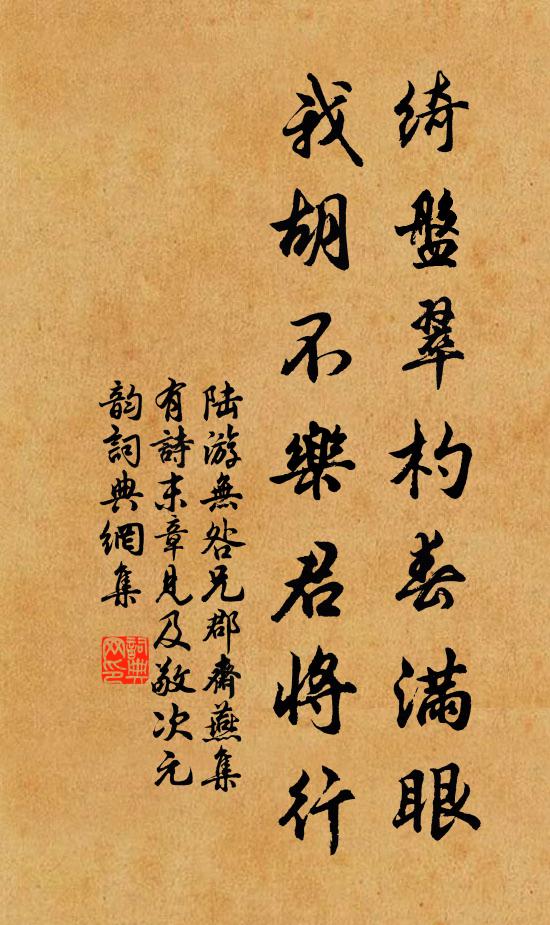 綺盤翠杓春滿眼
我胡不樂君將行
陆游無咎兄郡齋燕集
有詩末章見及敬次元
韵詞典網集
詞典網印